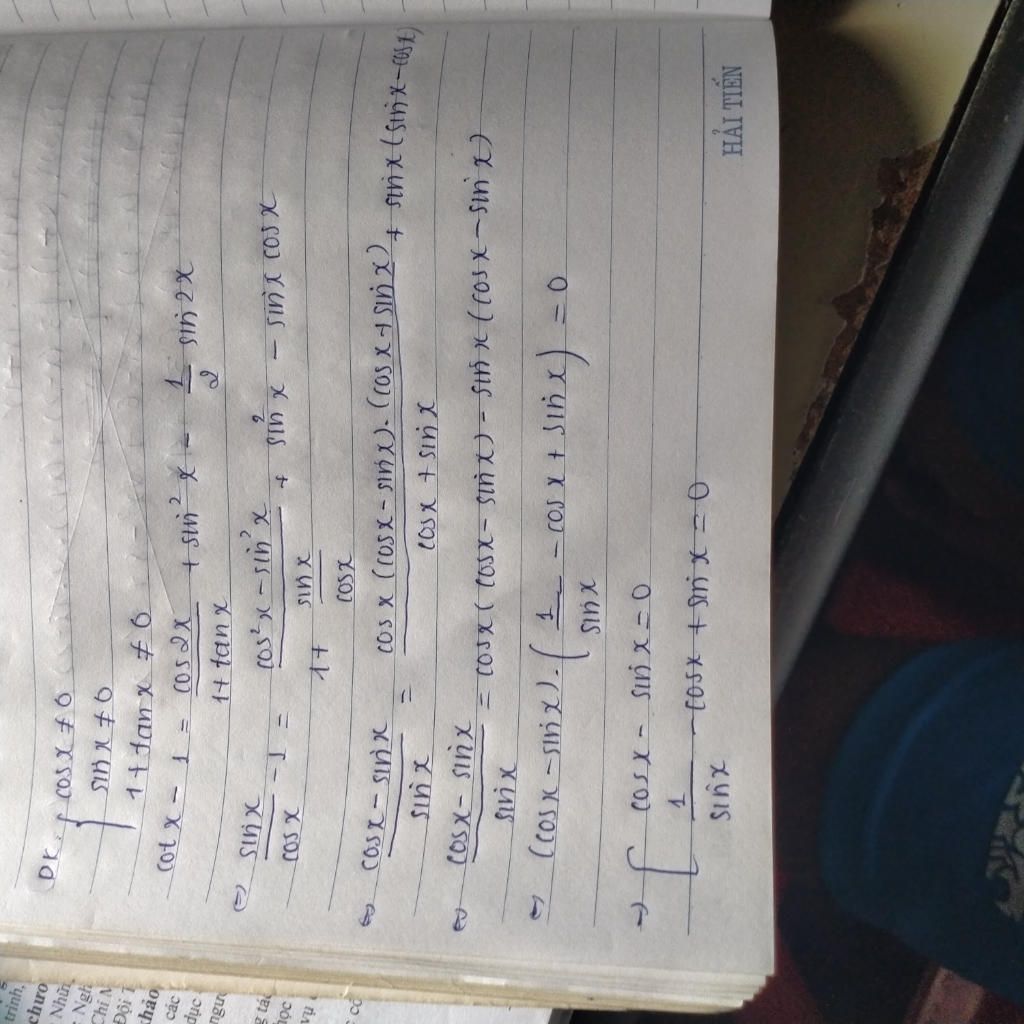 ĐK: { cosx ≠ 0
sinx ≠ 0
1 + tanx ≠ 0
cotx - 1 = cos2x / (1 + tanx) + sin²x - 1/2 sin2x
⇔ sinx / cosx - 1 = (cos²x - sin²x) / (1 + sinx / cosx) + sin²x - sinx cosx
⇔ (cosx - sinx) / sinx = cosx (cosx - sinx).(cosx + sinx) / (cosx + sinx) + sinx (sinx - cosx)
⇔ (cosx - sinx) / sinx = cosx (cosx - sinx) - sinx (cosx - sinx)
⇔ (cosx - sinx).(1 / sinx - cosx + sinx) = 0
→ [ cosx - sinx = 0
1 / sinx - cosx + sinx = 0
HẢI TIẾN
trình,
chươ
Nhữn
Nghị
Chí M
Đội T
khảo
các
dục
ngườ